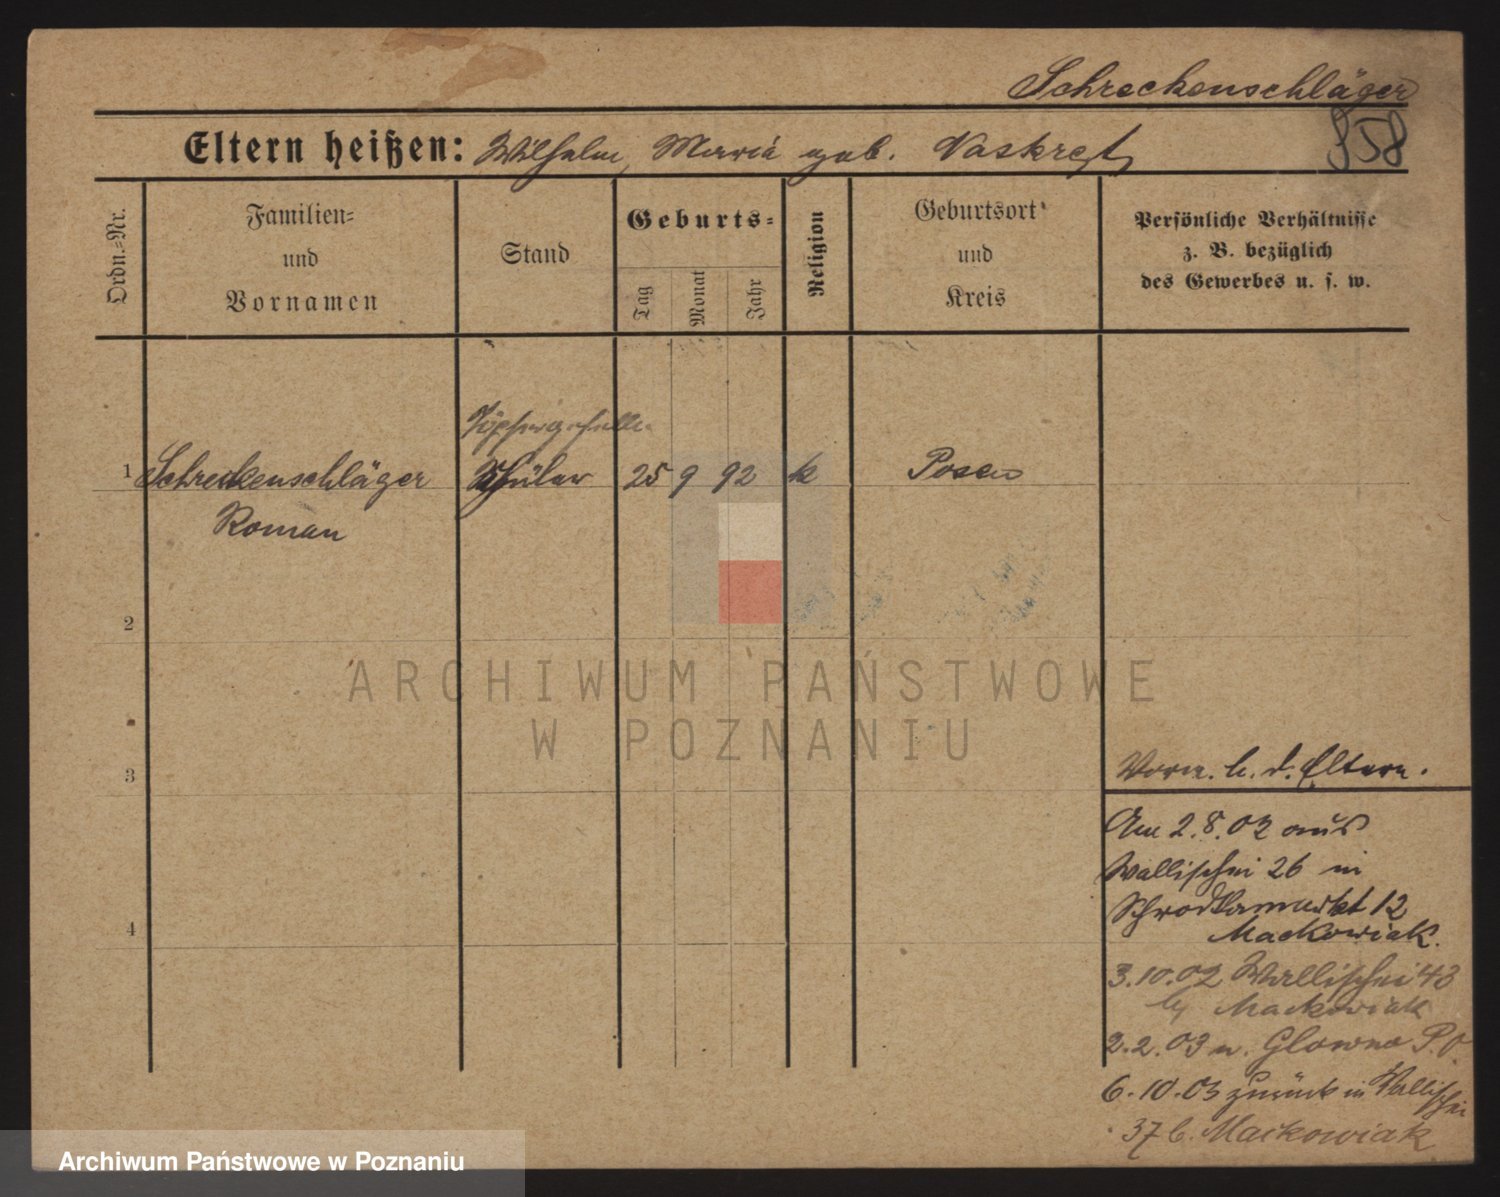 Schreckenschläger
Eltern heißen: Wilhelm, Maria geb. Naskręt
958
Ordn.=Nr.
Familien=
und
Vornamen
Stand
Geburts=
Tag
Monat
Jahr
Religion
Geburtsort
und
Kreis
Persönliche Verhältnisse
z. B. bezüglich
des Gewerbes u. s. w.
Töpfergeselle
1 Schreckenschläger Schüler 25 9 92 k Posen
Roman
2
ARCHIWUM PAŃSTWOWE
W POZNANIU
3
4
Vorm. b. d. Eltern.
Am 2.8.02 aus
Wallischei 26 in
Schrodkamarkt 12
Mackowiak.
3.10.02 Wallischei 43
b/ Mackowiak
2.2.03 n. Glowno P.O.
6.10.03 zurück in Wallischei
37 b. Mackowiak
Archiwum Państwowe w Poznaniu